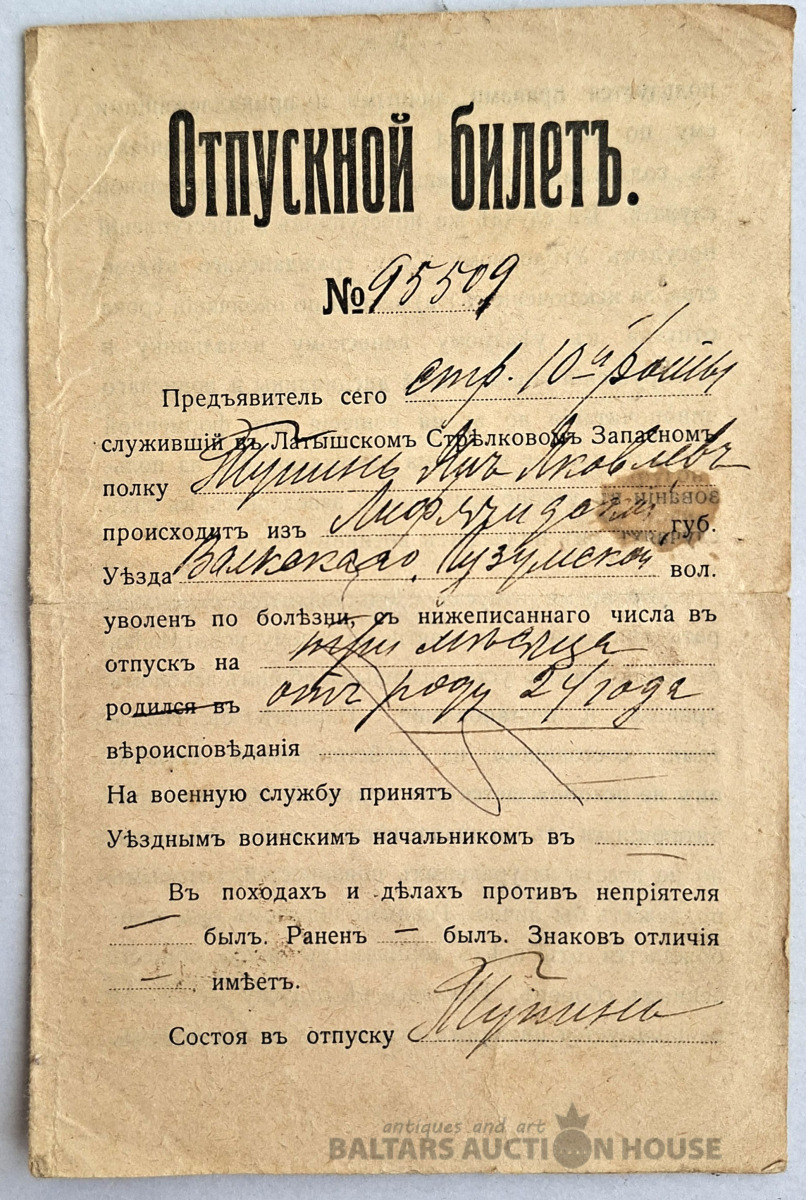 Отпускной билетъ.
№ 95509
Предъявитель сего стр. 10й роты
служившій въ Латышскомъ Стрѣлковомъ Запасномъ
полку Тупинь Яковлевъ
происходитъ изъ Лифляндской губ.
Уѣзда Валкскаго, вол.
уволенъ по болѣзни, съ нижеписаннаго числа въ
отпускъ на три мѣсяца
родился въ отъ роду 24 года
вѣроисповѣданія
На военную службу принятъ
Уѣзднымъ воинскимъ начальникомъ въ
Въ походахъ и дѣлахъ противъ непріятеля
— былъ. Раненъ — былъ. Знаковъ отличія
— имѣетъ.
Состоя въ отпуску Тупинь
antiques and art
BALTARS AUCTION HOUSE